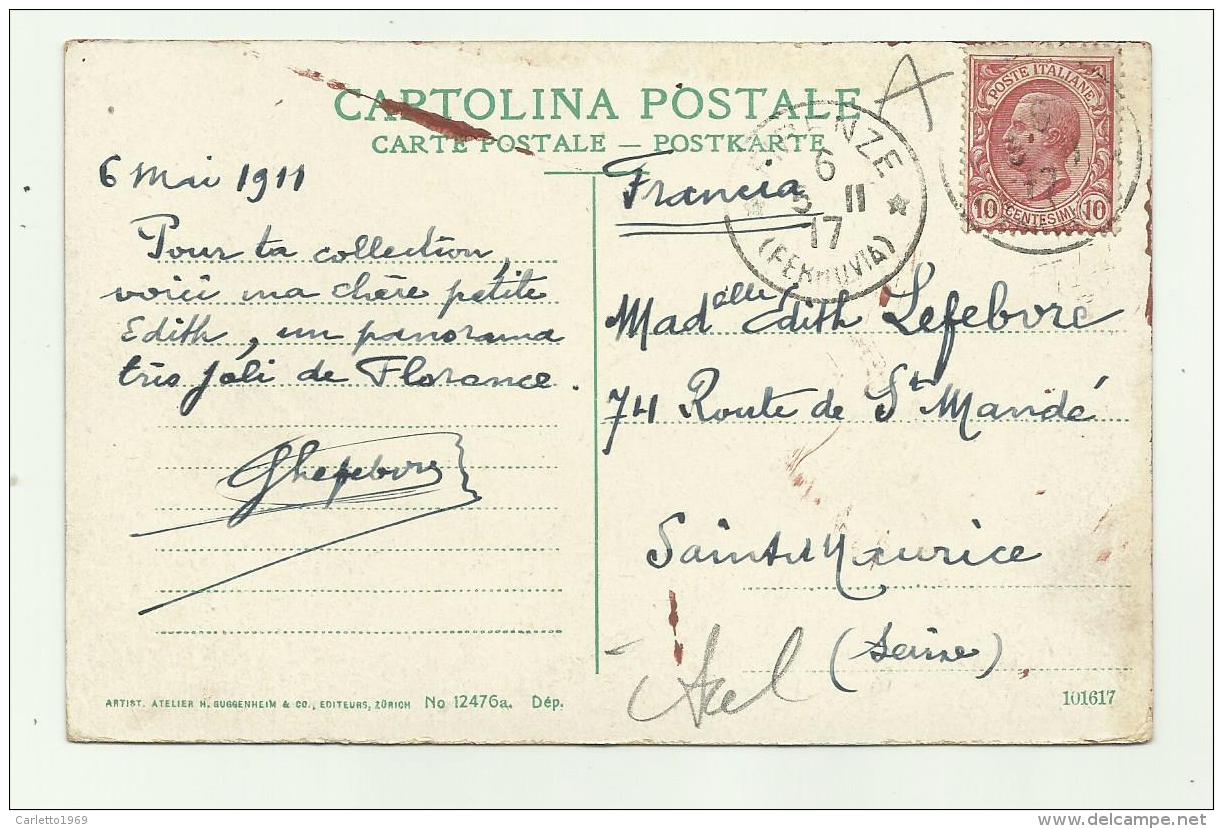 CARTOLINA POSTALE
CARTE POSTALE — POSTKARTE
6 Mai 1911
Pour ta collection,
voici ma chère petite
Edith, un panorama
très joli de Florance.
Francia
FIRENZE
6
5 11
17
(FERROVIA)
POSTE ITALIANE
10 CENTESIMI 10
17
Mad elle Edith Lefebvre
74 Route de St Mandé
Saint Maurice
(Seine)
ARTIST. ATELIER H. GUGGENHEIM & CO., EDITEURS, ZÜRICH No 12476a. Dép.
101617
Carletto1969
www.delcampe.net